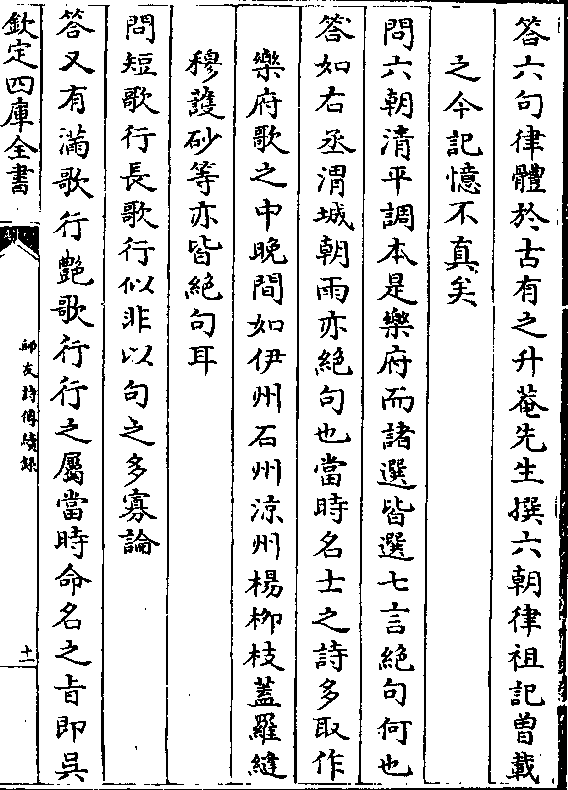 答六句律體於古有之升菴先生撰六朝律祖記曽載
之今記憶不真矣
問六朝清平調本是樂府而諸選皆選七言絶句何也
答如右丞渭城朝雨亦絶句也當時名士之詩多取作
樂府歌之中晩間如伊州石州涼州楊柳枝蓋羅縫
穆護砂等亦皆絶句耳
問短歌行長歌行似非以句之多寡論
答又有滿歌行艶歌行行之屬當時命名之㫖即吳
欽定四庫全書
師友詩傳續録
十二